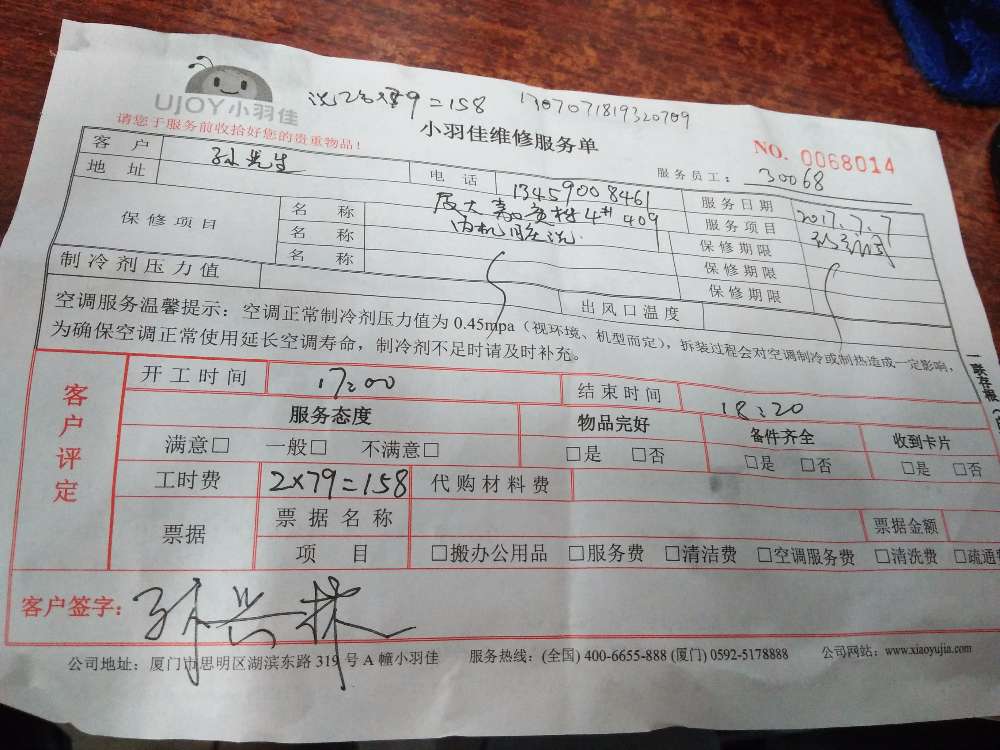 UJOY小羽佳
洗2台×79=158 1707071819320709
请您于服务前收拾好您的贵重物品!
小羽佳维修服务单
NO. 0068014
服务员工: 30068
客户 孙先生 电话 13459008461 服务日期 2017.7.7
地址 厦大 4# 409 服务项目
保修项目 名称 内机 洗 保修期限
名称 保修期限
名称 保修期限
制冷剂压力值 出风口温度
空调服务温馨提示:空调正常制冷剂压力值为 0.45mpa(视环境、机型而定),拆装过程会对空调制冷或制热造成一定影响,
为确保空调正常使用延长空调寿命,制冷剂不足时请及时补充。
客户评定
开工时间 17:00 结束时间 18:20
服务态度 物品完好 备件齐全 收到卡片
满意□ 一般□ 不满意□ □是 □否 □是 □否 □是 □否
工时费 2×79=158 代购材料费
票据 票据名称 票据金额
项目 □搬办公用品 □服务费 □清洁费 □空调服务费 □清洗费 □疏通
客户签字: 孙兴林
公司地址:厦门市思明区湖滨东路 319 号 A 幢小羽佳 服务热线:(全国) 400-6655-888 (厦门) 0592-5178888 公司网站:www.xiaoyujia.com